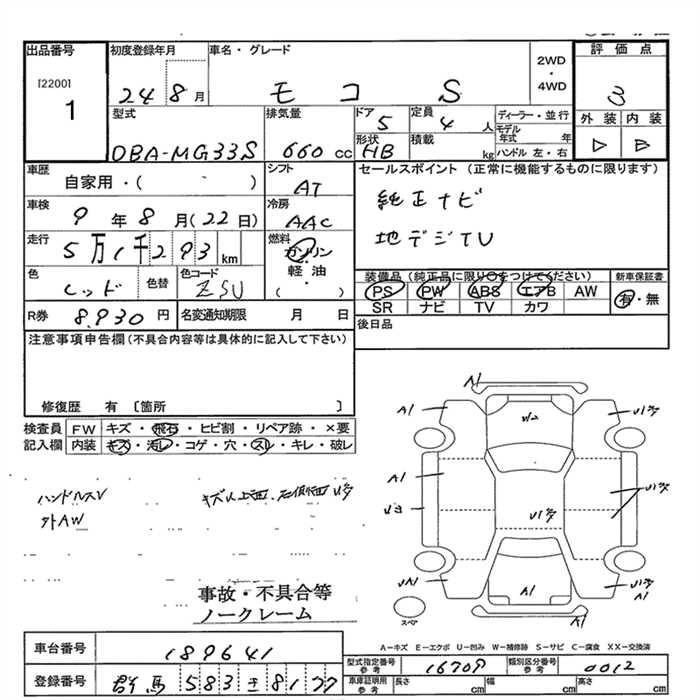 出品番号
[2200]
1
初度登録年月
24 8月
車名・グレード
モコ S
2WD
・
4WD
評価点
3
外装 内装
D B
型式
DBA-MG33S
排気量
660 cc
ドア
5
定員
4 人
形状
HB
積載
kg
ディーラー・並行
モデル年式 年
ハンドル 左・右
車歴
自家用・( )
シフト
AT
セールスポイント (正常に機能するものに限ります)
純正ナビ
地デジTV
車検
9年8月(22日)
冷房
AAC
走行
5万1千293km
燃料
ガソリン
・
軽油
( ・ )
色
レッド
色替
色コード
ZSU
装備品(純正品に限り○をつけてください)
PS PW ABS エアB AW
SR ナビ TV カワ
新車保証書
有・無
R券
8,930円
名変通知期限 月 日
後日品
注意事項申告欄(不具合内容等は具体的に記入して下さい)
修復歴 有 〔箇所 〕
検査員
記入欄
FW キズ・飛石・ヒビ割・リペア跡・×要
内装 キズ・汚レ・コゲ・穴・スレ・キレ・破レ
ハンドルスレ
外AW
事故・不具合等
ノークレーム
A1
A1
W2
A1
A1
A1
スペア
A−キズ E−エクボ U−凹み W−補修跡 S−サビ C−腐食 XX−交換済
車台番号
189641
登録番号
群馬 583 8177
型式指定番号
参考
16709
類別区分番号
参考
0012
車庫証明用
参考
長さ cm
幅 cm
高さ cm